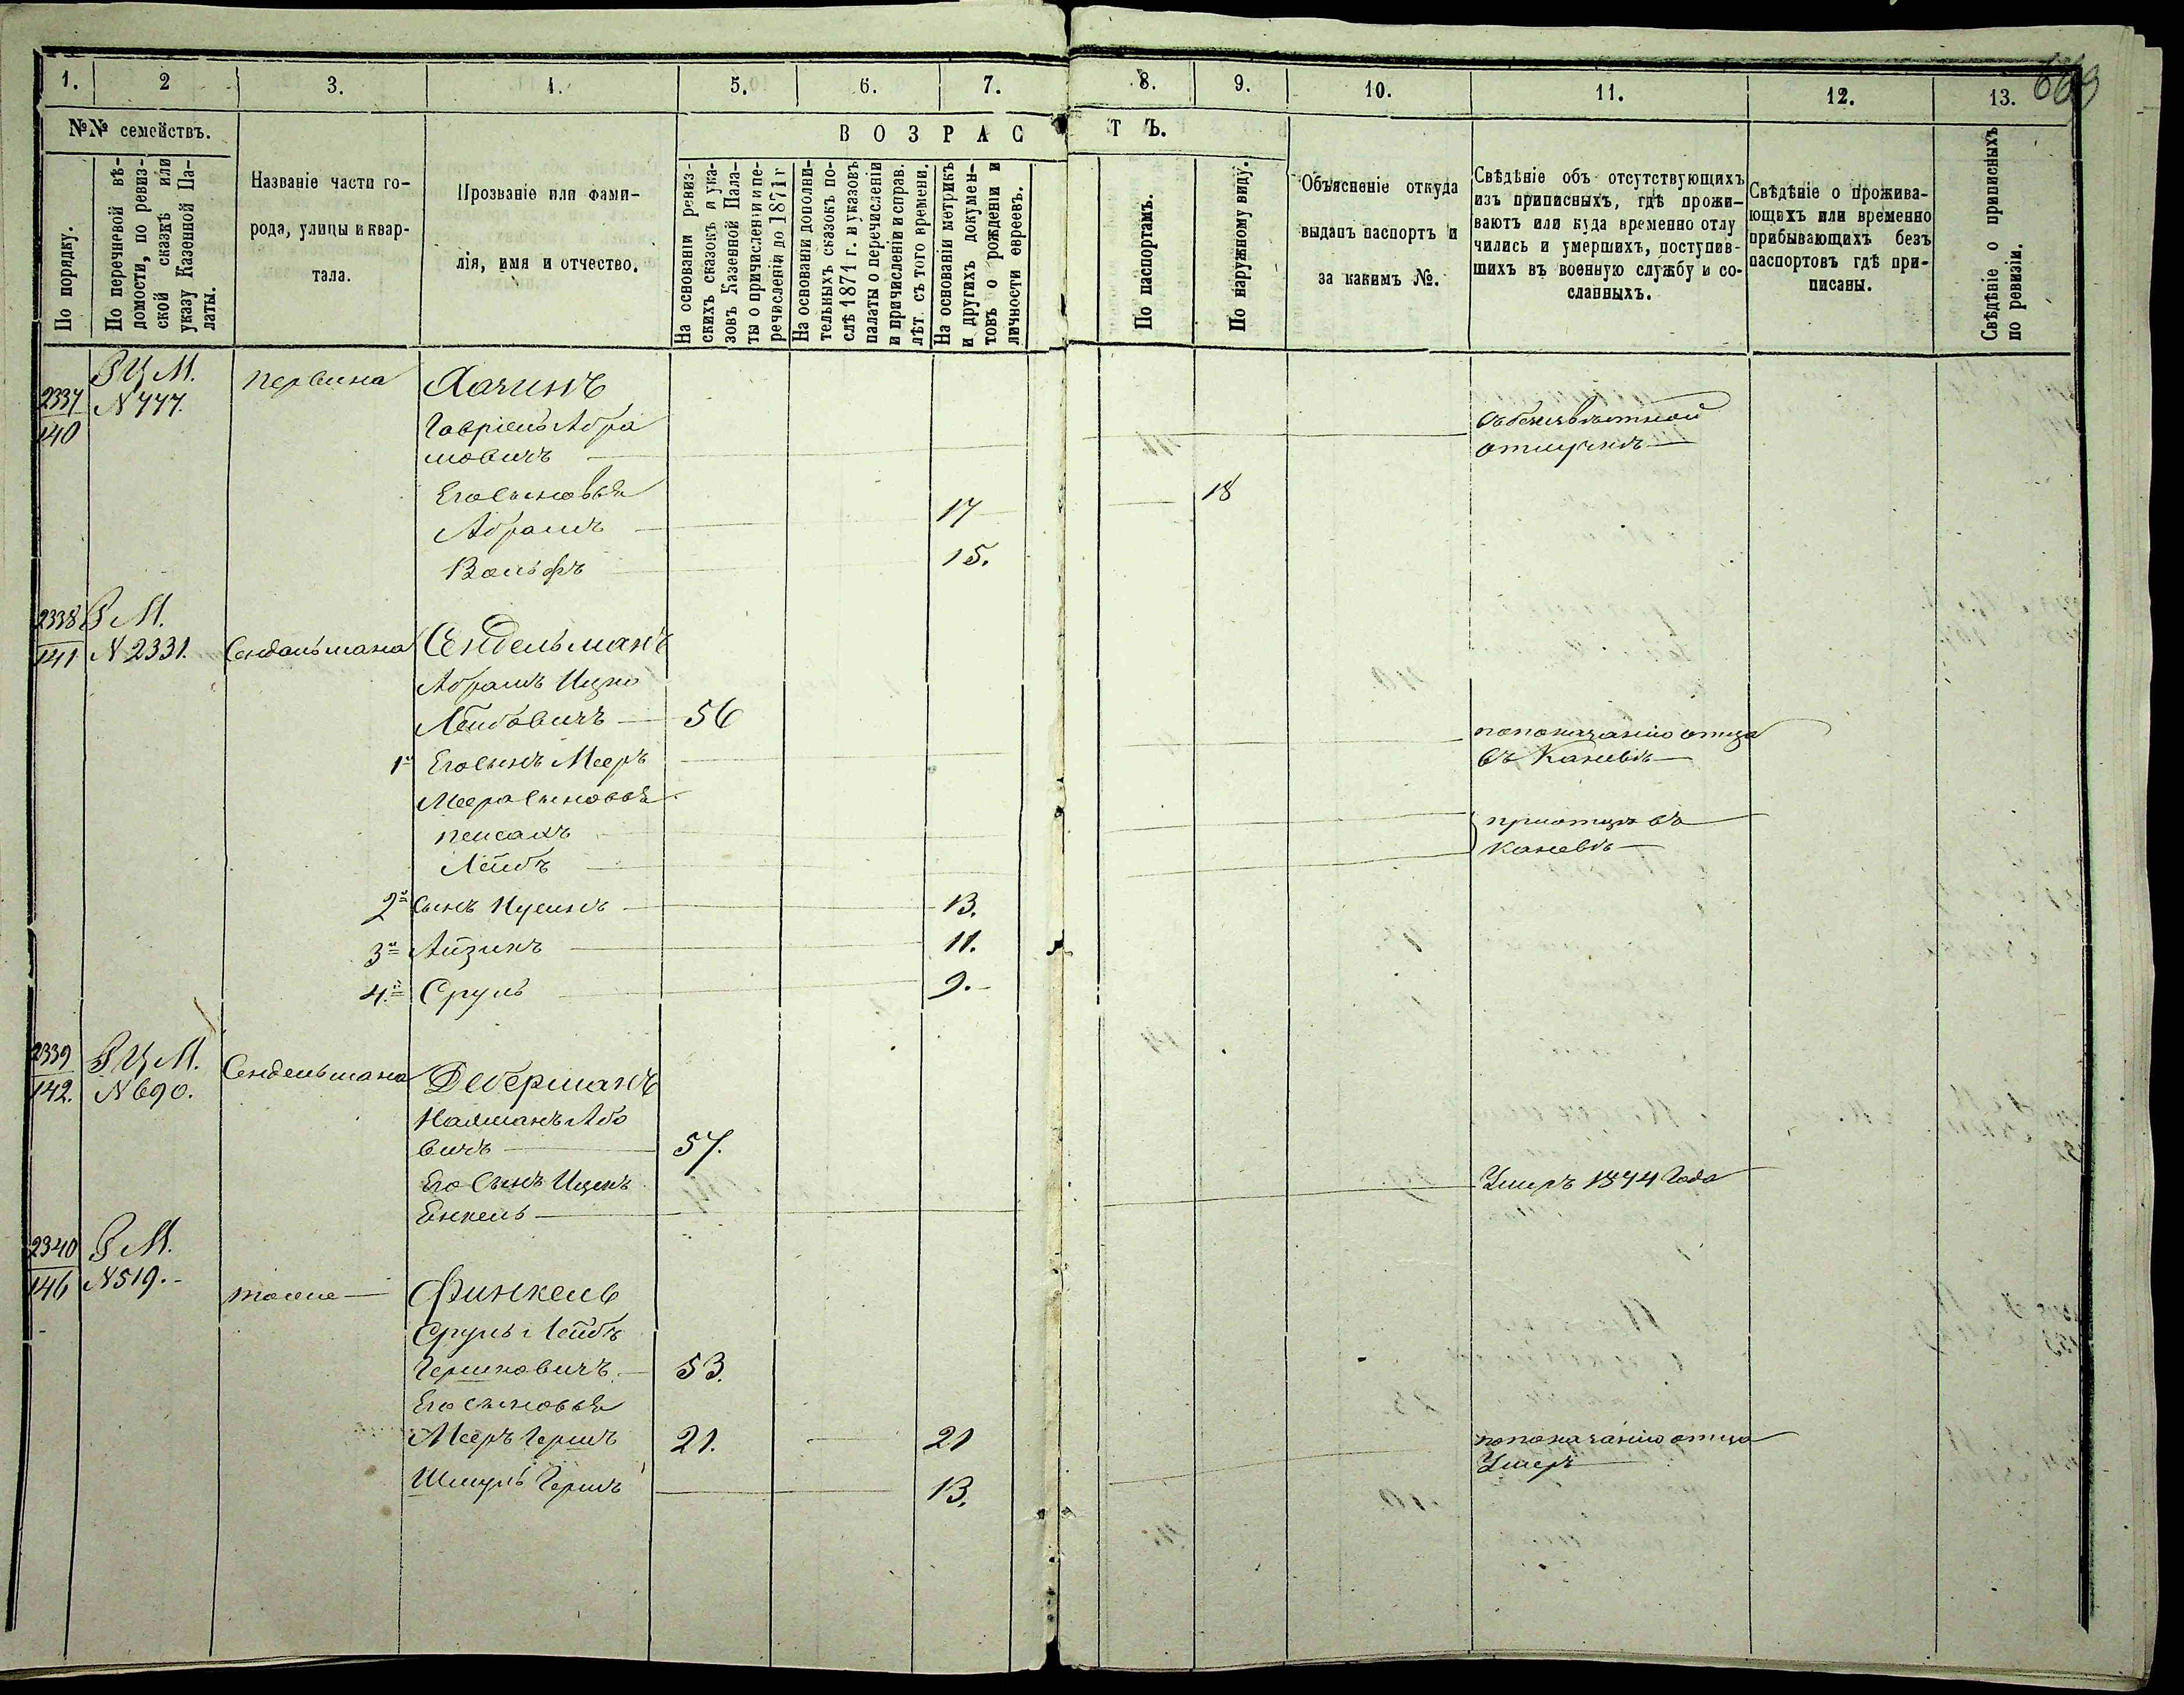 669
1. 2 3. 4. 5. 6. 7. 8. 9. 10. 11. 12. 13.
№№ семействъ.
По порядку.
По перечневой вѣ-
домости, по ревиз-
ской сказкѣ или
указу Казенной Па-
латы.
Названіе части го-
рода, улицы и квар-
тала.
Прозваніе или фами-
лія, имя и отчество.
ВОЗРАСТЪ.
На основаніи ревиз-
скихъ сказокъ и ука-
зовъ Казенной Пала-
ты о причисленіи и пе-
речисленіи до 1871 г
На основаніи дополни-
тельныхъ сказокъ по-
слѣ 1871 г. и указовъ
палаты о перечисленіи
и причисленіи и справ.
лѣт. съ того времени.
На основаніи метрикъ
и другихъ докумен-
товъ о рожденіи и
личности евреевъ.
По паспортамъ.
По наружному виду.
Объясненіе откуда
выданъ паспортъ и
за какимъ №.
Свѣдѣніе объ отсутствующихъ
изъ приписныхъ, гдѣ прожи-
ваютъ или куда временно отлу
чились и умершихъ, поступив-
шихъ въ военную службу и со-
сланныхъ.
Свѣдѣніе о прожива-
ющихъ или временно
прибывающихъ безъ
паспортовъ гдѣ при-
писаны.
Свѣдѣніе о приписныхъ
по ревизіи.
2337
140
Р Ц М.
N 777.
Первина
Хачинъ
Гавріель Абра
мовичъ
въ безизвѣстной
отлучкѣ
Его сыновья
Абрамъ 17 18
Вольфъ 15.
2338
141
Р М.
N 2331.
Сендельмана
Сендельманъ
Абрамъ Ицко
Лейбовичъ 56
1й Его сынъ Мееръ
по показанію отца
въ Каневѣ
Меера сыновья
Пейсахъ
Лейбъ
при отцѣ въ
Каневѣ
2й Сынъ Нусинъ 13.
3й Айзикъ 11.
4й Сруль 9.
2339
142.
Р Ц М.
N 690.
Сендельмана
Деберманъ
Нахманъ Або
вичъ 57.
Его Сынъ Ицекъ
Енкель
Умеръ 1874 Года
2340
146
Р М.
N 519.
тоже
Финкель
Сруль Лейбъ
Гершковичъ 53.
Его сыновья
Мееръ Гершъ 21. 21
по показанію отца
Умеръ
Шмуль Гершъ 13.